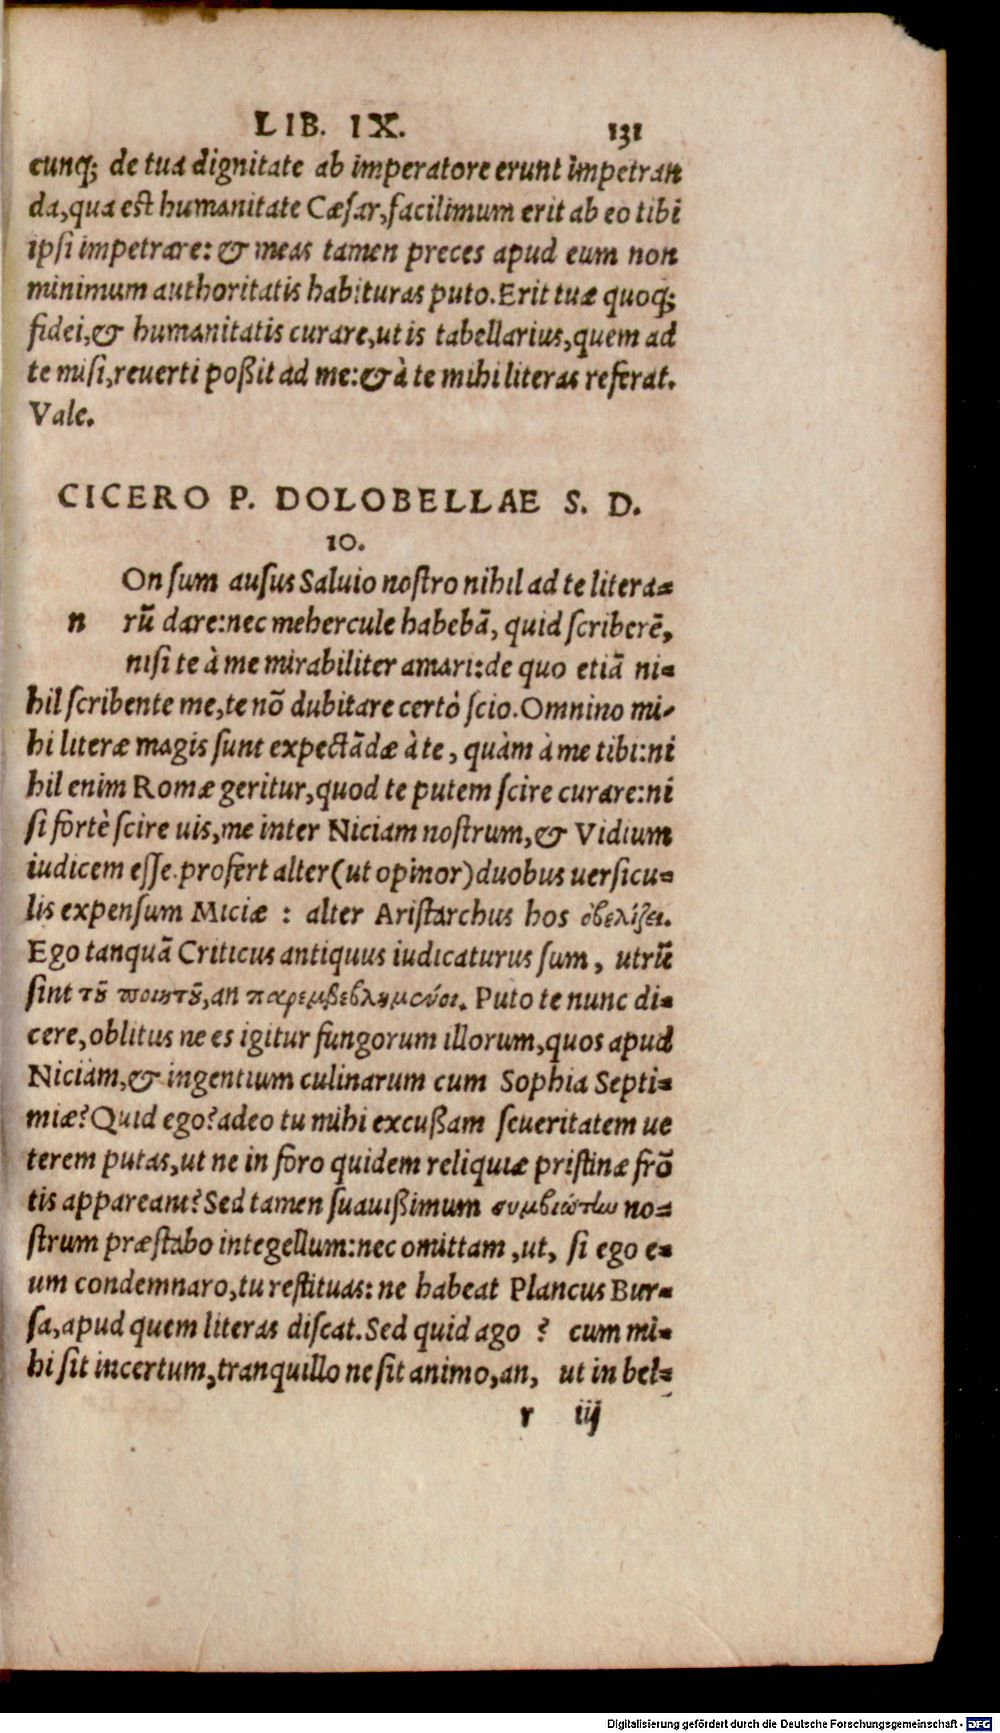 LIB. IX. 131
cunq; de tua dignitate ab imperatore erunt impetran
da,qua est humanitate Cæsar,facilimum erit ab eo tibi
ipsi impetrare: & meas tamen preces apud eum non
minimum authoritatis habituras puto.Erit tuæ quoq;
fidei,& humanitatis curare,ut is tabellarius,quem ad
te misi,reuerti poßit ad me:& à te mihi literas referat.
Vale.
CICERO P. DOLOBELLAE S. D.
10.
On sum ausus Saluio nostro nihil ad te litera=
n rū dare:nec mehercule habebā, quid scriberē,
nisi te à me mirabiliter amari:de quo etiā ni=
hil scribente me,te nō dubitare certò scio.Omnino mi-
hi literæ magis sunt expectādæ à te, quàm à me tibi:ni
hil enim Romæ geritur,quod te putem scire curare:ni
si fortè scire uis,me inter Niciam nostrum,& Vidium
iudicem esse.profert alter(ut opinor)duobus uersicu=
lis expensum Miciæ : alter Aristarchus hos ὀβελίζει.
Ego tanquā Criticus antiquus iudicaturus sum, utrū
sint τȣ͂ ποιητȣ͂,an παρεμβεβλημένοι. Puto te nunc di=
cere,oblitus ne es igitur fungorum illorum,quos apud
Niciam,& ingentium culinarum cum Sophia Septi=
miæ?Quid ego?adeo tu mihi excußam seueritatem ue
terem putas,ut ne in foro quidem reliquiæ pristinæ frō
tis appareant?Sed tamen suauißimum συμβιώτην no=
strum præstabo integellum:nec omittam ,ut, si ego e=
um condemnaro,tu restituas: ne habeat Plancus Bur=
sa,apud quem literas discat.Sed quid ago ? cum mi=
hi sit incertum,tranquillo ne sit animo,an, ut in bel=
r iij
Digitalisierung gefördert durch die Deutsche Forschungsgemeinschaft - DFG